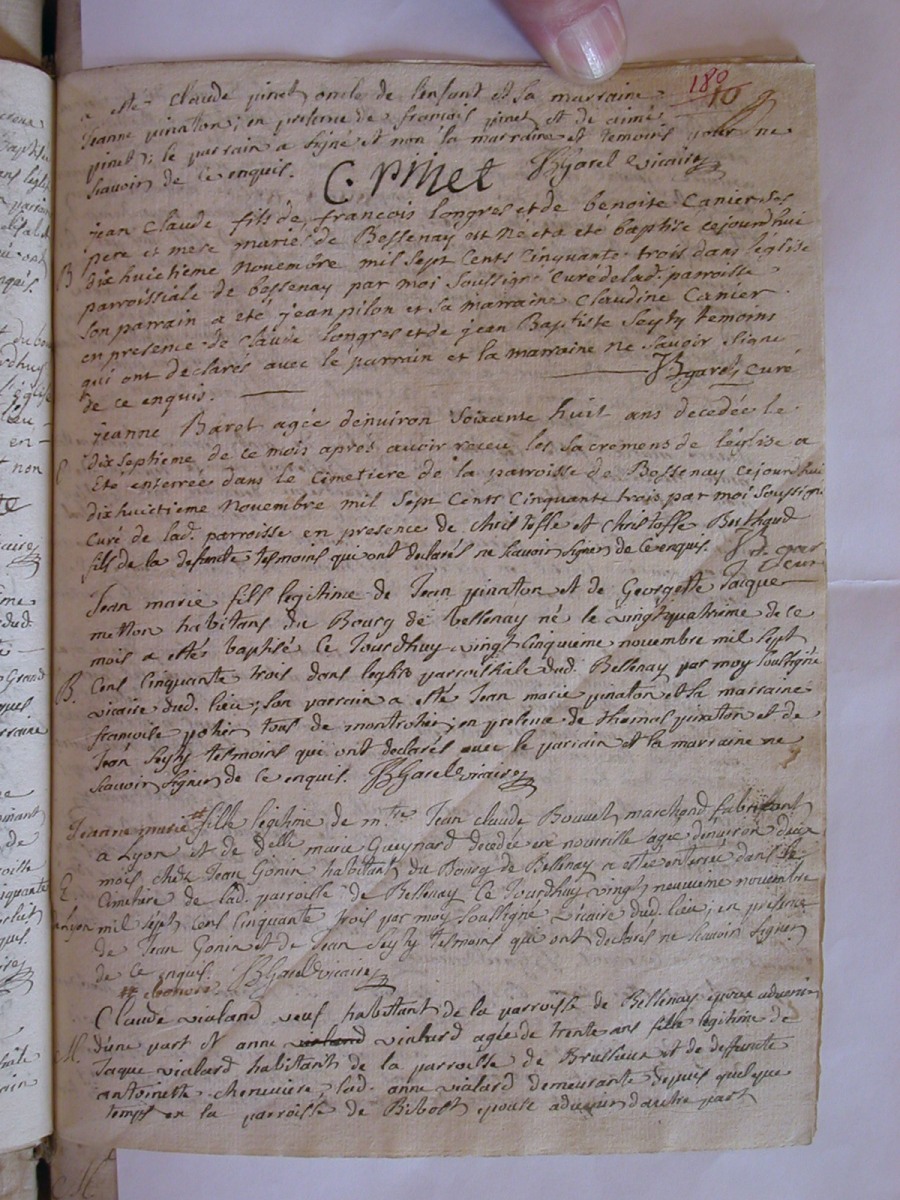 180
10
a esté Claude pinet oncle de l'enfant et sa marraine
Jeanne pinaton; en presence de françois pinet et de aimé
pinet; le parrain a signé et non la marraine et temoins pour ne
scavoir de ce enquis. C. Pinet JBgarel vicaire
jean Claude fils de françois Longres et de benoite Canier ses
pere et mere mariés de Bessenay est né et a été baptisé cejourdhui
B dixhuitieme Novembre mil sept Cents Cinquante trois dans l'église
parroissiale de bessenay par moi soussigné Curé de lad. parroisse
son parrain a été jean pilon et sa marraine Claudine Canier
en presence de Claude Longres et de jean Baptiste Seyty temoins
qui ont declarés avec le parrain et la marraine ne scavoir signe
de ce enquis. JBgarel curé
jeanne Baret agée denviron soixante huit ans decedée le
E dixseptieme de ce mois aprés avoir receu les Sacremens de leglise a
été enterrée dans le Cimetiere de la parroisse de Bessenay cejourdhui
dixhuitieme Novembre mil sept Cents Cinquante trois par moi soussigné
Curé de lad. parroisse en presence de christoffe et christoffe Berthaud
fils de la defuncte tesmoins qui ont declarés ne scavoir signer de ce enquis.
Jean marie fils legitime de Jean pinaton et de Georgette Jacque
metton habitans du Bourg de Bessenay né le vingt quatrieme de ce
mois a estés baptisé ce Jourdhuy vingt cinquieme novembre mil sept
B. Cens Cinquante trois dans leglise parroissiale dud. Bessenay par moy soussigné
vicaire dud. lieu; son parrain a esté Jean marie pinaton et la marraine
françoise pohier tous de montrotier; en presence de thomas pinaton et de
Jean Seyty tesmoins qui ont declarés avec le parrain et la marraine ne
scavoir signer de ce enquis. JBgarel vicaire
Jeanne marie # fille legitime de mtre Jean claude Bouvet marchand fabriquant
a Lyon et de delle marie Gueynard decedée en nourrisse agée denviron deux
mois chez Jean Gonin habitant du Bourg de Bessenay a esté enterrée dans le
E. Cimetiere de lad. parroisse de Bessenay ce Jourdhuy vingt neuvieme novembre
mil sept cens cinquante trois par moy soussigné vicaire dud. lieu; en presence
de Jean Gonin et de Jean Seyty tesmoins qui ont declarés ne scavoir signer
de ce enquis. JBgarel vicaire
Claude vialand veuf habitant de la parroisse de Bessenay epoux advenir
M. d'une part et anne vialard agée de trente ans fille legitime de
Jaque vialard habitant de la parroisse de Brussieux et de deffuncte
antoinette cheneviere, lad. anne vialard demeurante depuis quelque
temps en la parroisse de Bibost epouse advenir d'autre part